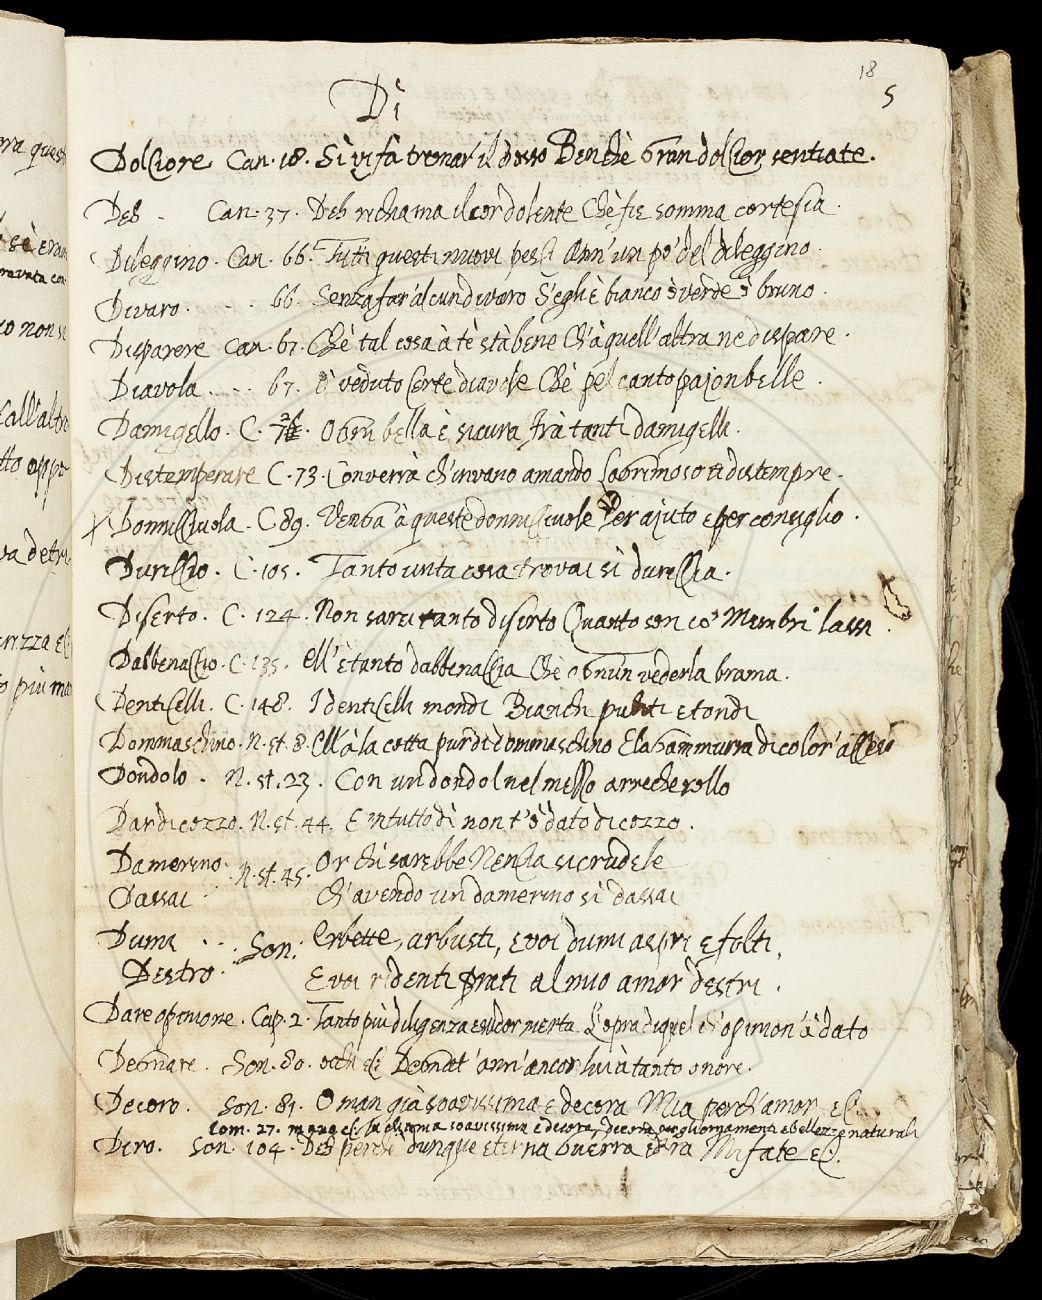 18
5
Di
Dolciore Can. 18. Sì vi fà tremar' il dosso Benchè gran dolcior sentiate.
Deh - Can. 37. Deh richiama il cor dolente Chè fie somma cortesia.
Dileggino. Can. 66. Tutti questi nuovi pesci Ann' un pò del dileggino.
Divaro. . . . 66. Senza far' alcun divaro S'egli è bianco ò verde ò bruno.
Disparere Can. 67. Chè tal cosa à tè stà bene Ch'à quell' altra ne dispare.
Diavola . . . 67. Ò veduto certe diavole Chè pel canto pajon belle.
Damigello. C. Ogni bella è sicura frà tanti damigelli.
Distemperare C. 73. Converrà ch'invano amando Lagrimoso ti distempre.
X Donnicciuola. C 89. Venga à queste donnicciuole Per ajuto e per consiglio.
Duriccio. C. 105. Tanto unta cosa trovai sì duriccia.
Diserto. C. 124. Non sarei tanto diserto Quanto son co' Membri lassi.
Dabbenaccio. C. 135. Ell' è tanto dabbenaccia Chè ognun vederla brama.
Denticelli. C. 148. I denticelli mondi Bianchi puliti e tondi
Dommaschino. N. st. 8. Ell' à la cotta pur di dommaschino E la gammurra di color'
Dondolo. N. st. 23. Con un dondol nel mezzo arrecherollo
Dar di cozzo. N. st. 44. E in tutto dì non t'ò dato di cozzo.
Damerino. N. st. 45. Or chi sarebbe Nencia sì crudele
Dassai Ch'avendo un damerino sì dassai
Dumi . . . Son. Erbette, arbusti, e voi dumi aspri e folti,
Destro. E voi ridenti prati al mio amor destri.
Dare opinione. Cap. 2. Tanto più diligenza merta L'opra di quel ch'opinion' à dato
Degnare. Son. 80. occhi &c. Degnat' ann' ancor lui à tanto onore.
Decoro. Son. 81. O man già soavissima e decora Mia perch'amor &c.
Com. 27. mano &c. la chiama soavissima e decora, decora per gli ornamenti e bellezze naturali
Diro. Son. 104. Deh perchè dunque eterna guerra e dira Mi fate &c.